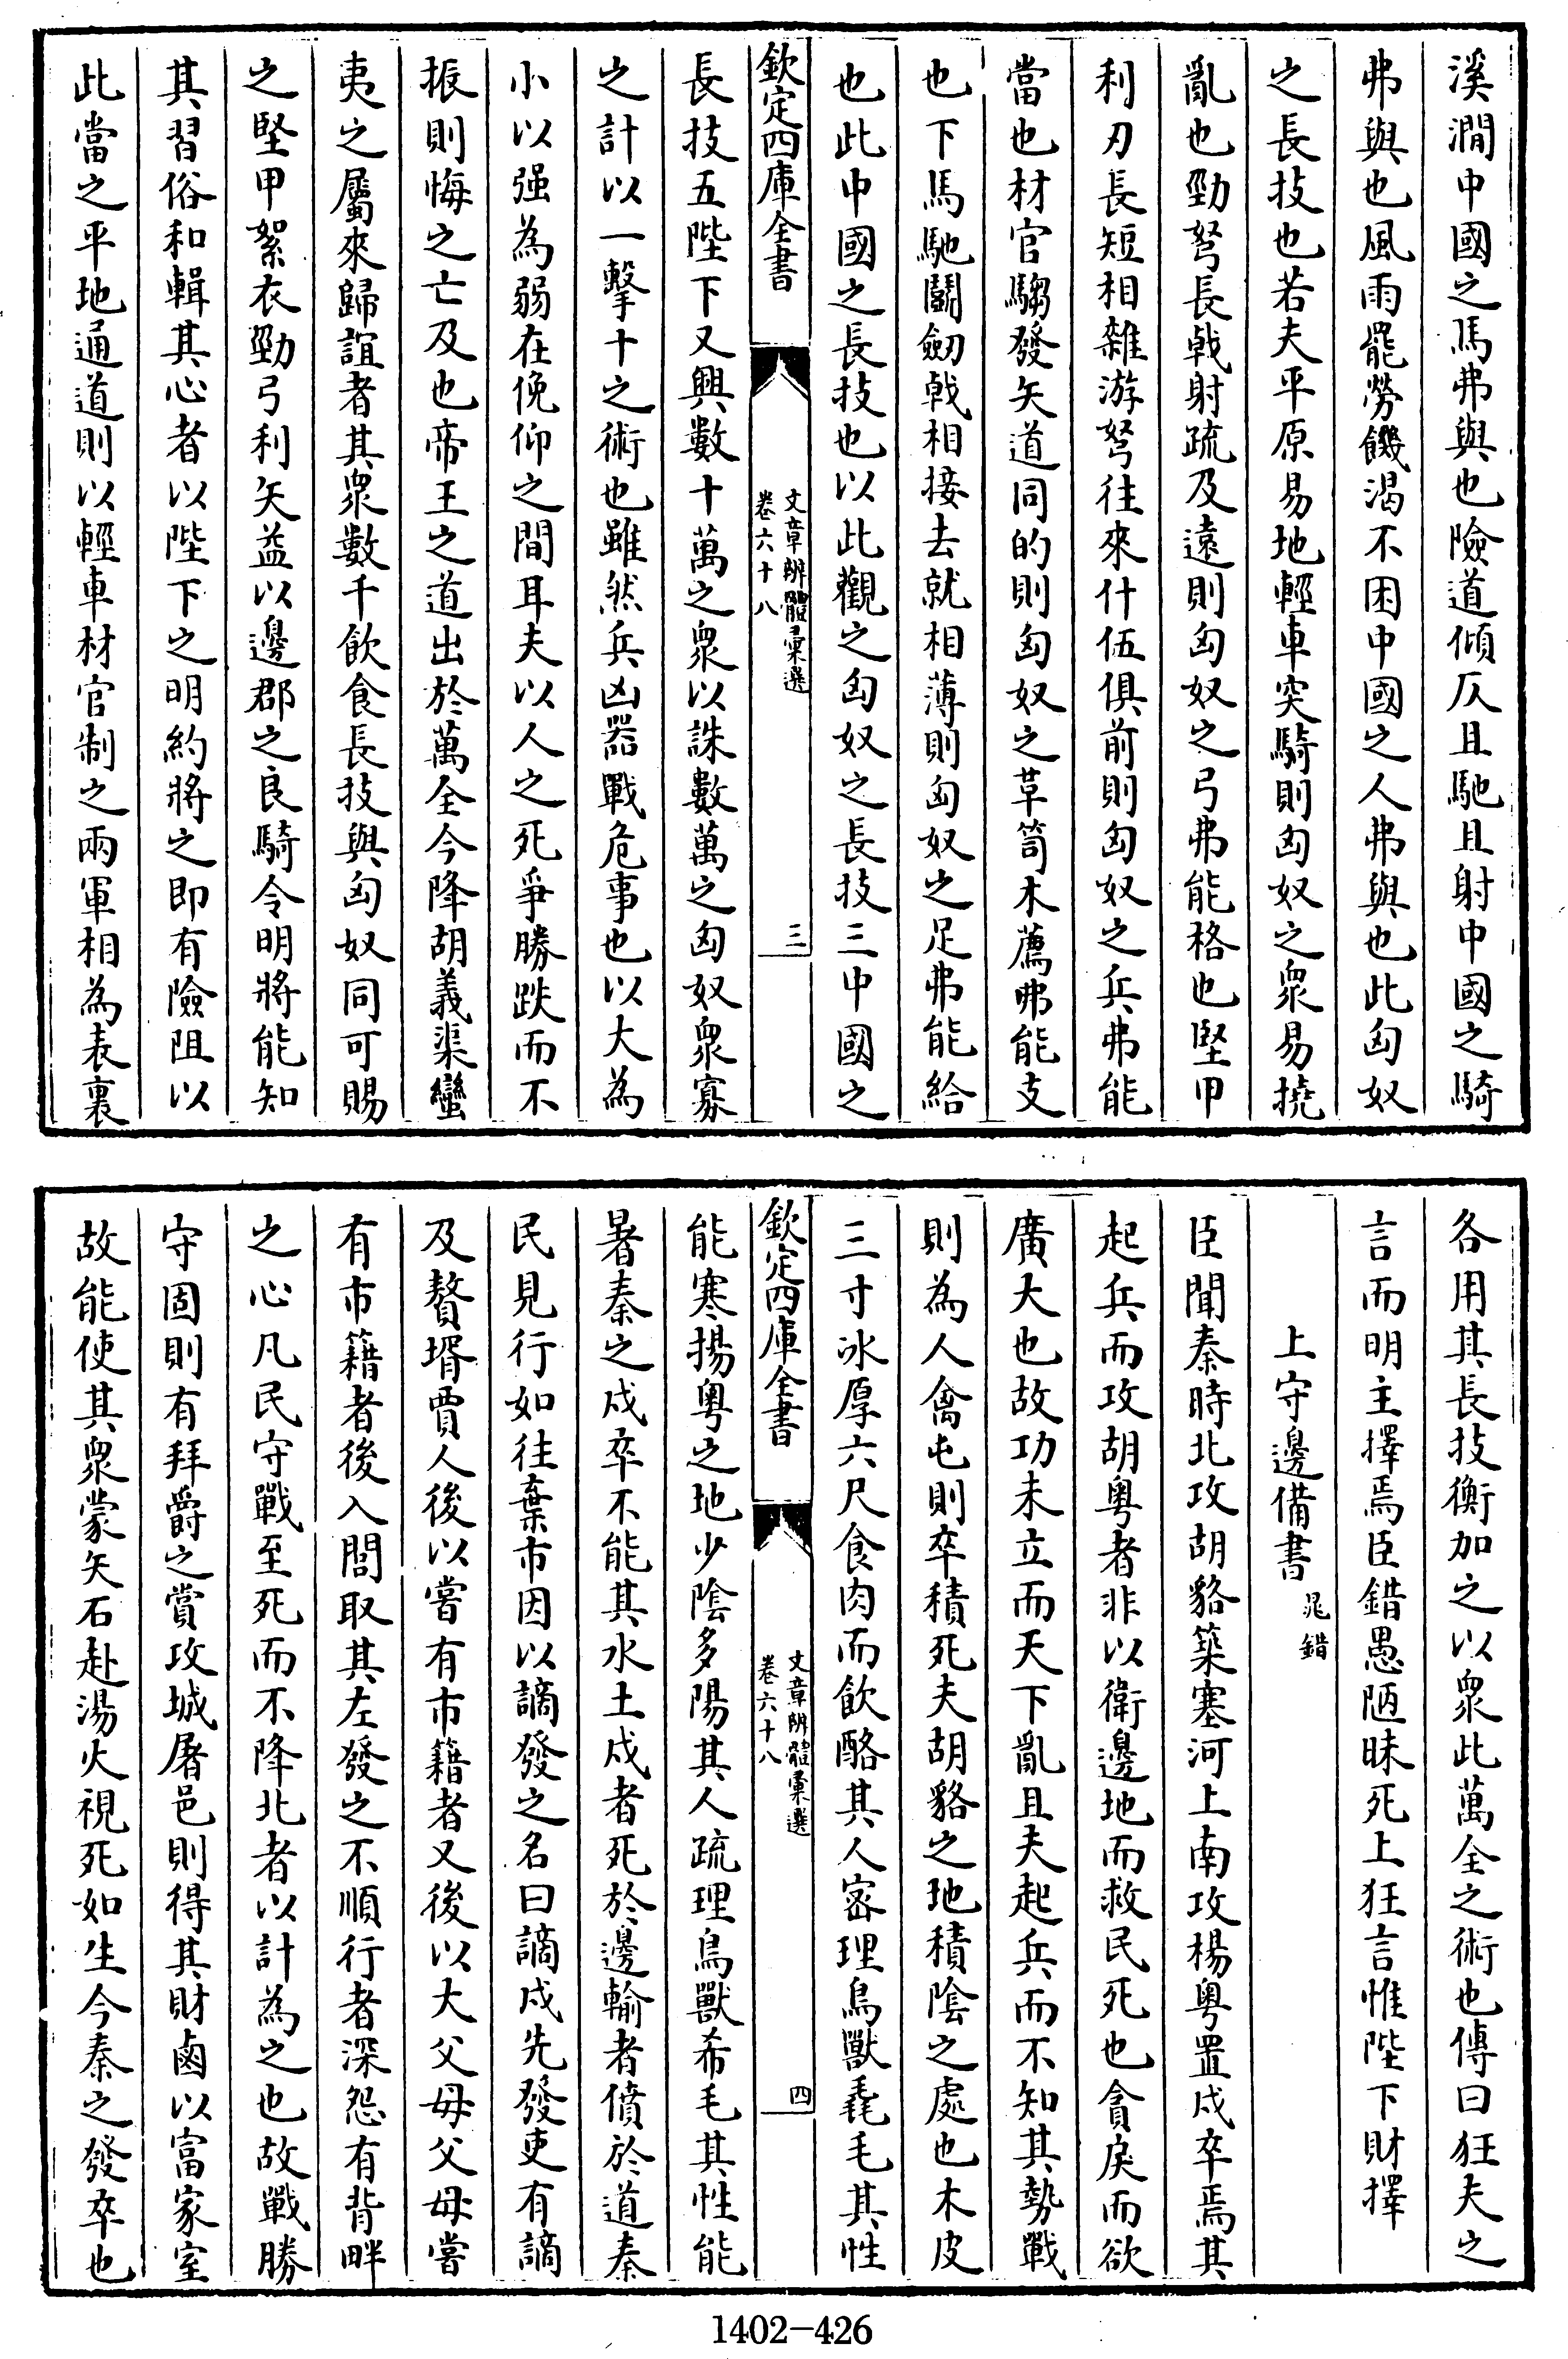 溪澗中國之馬弗與也險道傾仄且馳且射中國之騎
弗與也風雨罷勞饑渴不困中國之人弗與也此匈奴
之長技也若夫平原易地輕車突騎則匈奴之衆易撓
亂也勁弩長戟射疏及遠則匈奴之弓弗能格也堅甲
利刃長短相雜游弩往來什伍俱前則匈奴之兵弗能
當也材官騶發矢道同的則匈奴之革笥木薦弗能支
也下馬馳鬭劒戟相接去就相薄則匈奴之足弗能給
也此中國之長技也以此觀之匈奴之長技三中國之
欽定四庫全書
文章辨體彙選
卷六十八
三
長技五陛下又興數十萬之衆以誅數萬之匈奴衆寡
之計以一擊十之術也雖然兵凶器戰危事也以大為
小以强為弱在俛仰之間耳夫以人之死爭勝跌而不
振則悔之亡及也帝王之道出於萬全今降胡義渠蠻
夷之屬來歸誼者其衆數千飲食長技與匈奴同可賜
之堅甲絮衣勁弓利矢益以邊郡之良騎令明將能知
其習俗和輯其心者以陛下之明約將之即有險阻以
此當之平地通道則以輕車材官制之兩軍相為表裏
各用其長技衡加之以衆此萬全之術也傳曰狂夫之
言而明主擇焉臣錯愚陋昧死上狂言惟陛下財擇
上守邊備書 晁錯
臣聞秦時北攻胡貉築塞河上南攻楊粤置戍卒焉其
起兵而攻胡粤者非以衛邊地而救民死也貪戾而欲
廣大也故功未立而天下亂且夫起兵而不知其勢戰
則為人禽屯則卒積死夫胡貉之地積陰之處也木皮
三寸冰厚六尺食肉而飲酪其人宻理鳥獸毳毛其性
欽定四庫全書
文章辨體彙選
卷六十八
四
能寒揚粤之地少陰多陽其人疏理鳥獸希毛其性能
暑秦之戍卒不能其水土戍者死於邊輸者僨於道秦
民見行如往棄市因以謫發之名曰謫戍先發吏有謫
及贅壻賈人後以嘗有市籍者又後以大父母父母嘗
有市籍者後入閭取其左發之不順行者深怨有背畔
之心凡民守戰至死而不降北者以計為之也故戰勝
守固則有拜爵之賞攻城屠邑則得其財鹵以富家室
故能使其衆蒙矢石赴湯火視死如生今秦之發卒也
1402-426